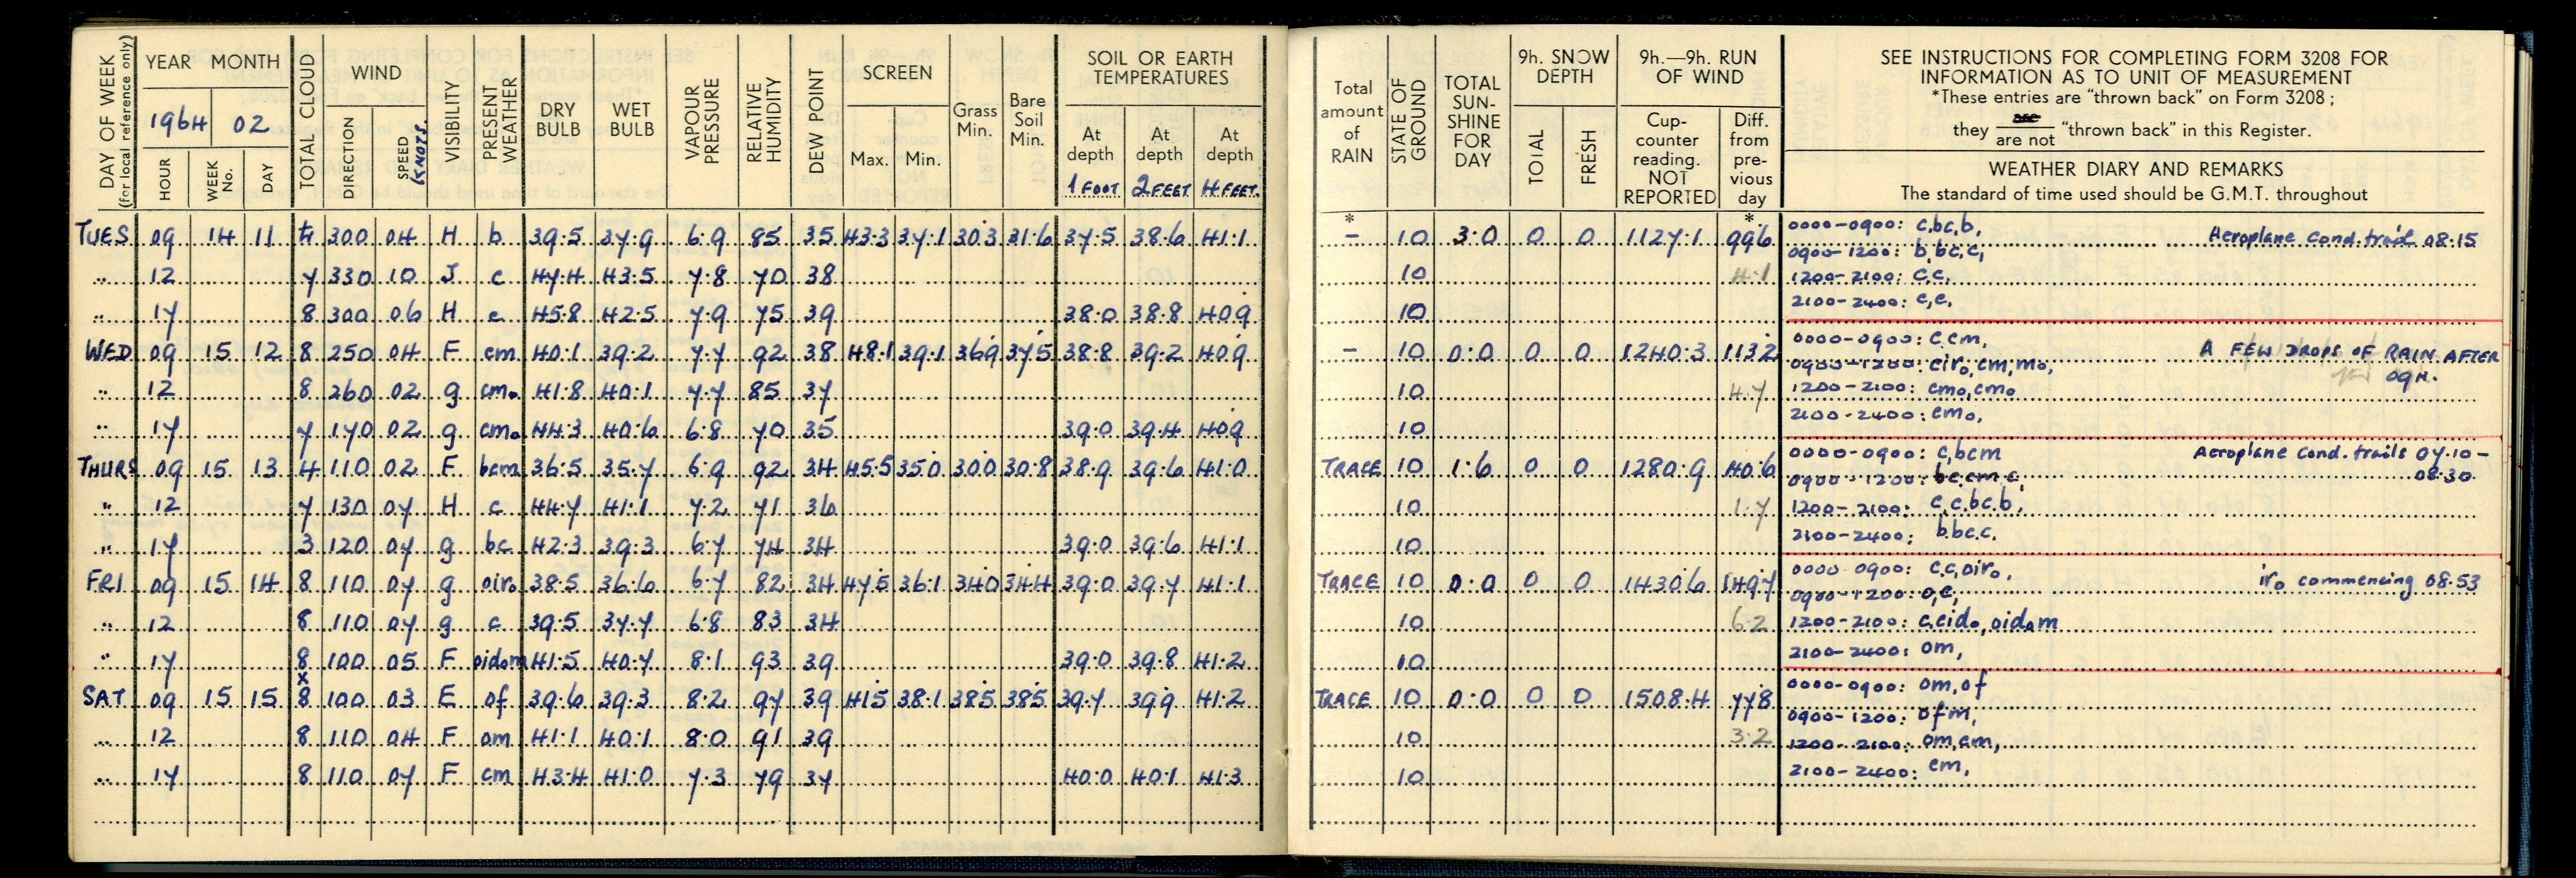 DAY OF WEEK
(for local reference only)
YEAR MONTH
1964 02
HOUR
WEEK No.
DAY
TOTAL CLOUD
WIND
DIRECTION
SPEED
KNOTS.
VISIBILITY
PRESENT WEATHER
DRY BULB
WET BULB
VAPOUR PRESSURE
RELATIVE HUMIDITY
DEW POINT
SCREEN
Max. Min.
Grass Min.
Bare Soil Min.
SOIL OR EARTH
TEMPERATURES
At depth At depth At depth
1 FOOT 2 FEET 4 FEET.
TUES 09 14 11 4 300 04 H b 39.5 37.9 6.9 85 35 43.3 37.1 30.3 31.6 37.5 38.6 41.1
" 12 7 330 10 J c 47.4 43.5 7.8 70 38
" 17 8 300 06 H c 45.8 42.5 7.9 75 39 38.0 38.8 40.9
WED 09 15 12 8 250 04 F cm 40.1 39.2 7.7 92 38 48.1 39.1 36.9 37.5 38.8 39.2 40.9
" 12 8 260 02 g cmo 41.8 40.1 7.7 85 37
" 17 7 170 02 g cmo 44.3 40.6 6.8 70 35 39.0 39.4 40.9
THURS 09 15 13 4 110 02 F bcm 36.5 35.7 6.9 92 34 45.5 35.0 30.0 30.8 38.9 39.6 41.0
" 12 7 130 07 H c 44.7 41.1 7.2 71 36
" 17 3 120 07 g bc 42.3 39.3 6.7 74 34 39.0 39.6 41.1
FRI 09 15 14 8 110 07 g oiro 38.5 36.6 6.7 82 34 47.5 36.1 34.0 34.4 39.0 39.7 41.1
" 12 8 110 07 g c 39.5 37.7 6.8 83 34
" 17 8 100 05 F oidom 41.5 40.7 8.1 93 39 39.0 39.8 41.2
x
SAT 09 15 15 8 100 03 E of 39.6 39.3 8.2 97 39 41.5 38.1 38.5 38.5 39.7 39.9 41.2
" 12 8 110 04 F om 41.1 40.1 8.0 91 39
" 17 8 110 07 F cm 43.4 41.0 7.3 79 37 40.0 40.1 41.3
Total amount of RAIN
STATE OF GROUND
TOTAL SUN- SHINE FOR DAY
9h. SNOW DEPTH
TOTAL
FRESH
9h.—9h. RUN OF WIND
Cup- counter reading. NOT REPORTED
Diff. from pre- vious day
SEE INSTRUCTIONS FOR COMPLETING FORM 3208 FOR
INFORMATION AS TO UNIT OF MEASUREMENT
*These entries are "thrown back" on Form 3208;
they are / are not "thrown back" in this Register.
WEATHER DIARY AND REMARKS
The standard of time used should be G.M.T. throughout
* *
– 10 3.0 0 0 1127.1 99.6 0000-0900: c,bc,b, Aeroplane cond. trail 08.15
0900-1200: b,bc,c,
10 4.1 1200-2100: c,c,
10 2100-2400: c,c,
– 10 0.0 0 0 1240.3 113.2 0000-0900: c,cm, A FEW DROPS OF RAIN AFTER
0900-1200: ciro,cm,mo, 09H.
10 4.7 1200-2100: cmo,cmo
10 2100-2400: cmo,
TRACE 10 1.6 0 0 1280.9 40.6 0000-0900: c,bcm Aeroplane Cond. trails 07.10-
0900-1200: bc.cm.c, 08.30.
10 1.7 1200-2100: c,c.bc.b,
10 2100-2400: b.bc.c.
TRACE 10 0.0 0 0 1430.6 149.7 0000-0900: c.c,oiro, iro commencing 08.53
0900-1200: o,c,
10 6.2 1200-2100: c,cido,oidom
10 2100-2400: om,
TRACE 10 0.0 0 0 1508.4 77.8 0000-0900: om,of
0900-1200: ofm,
10 3.2 1200-2100: om,cm,
10 2100-2400: cm,